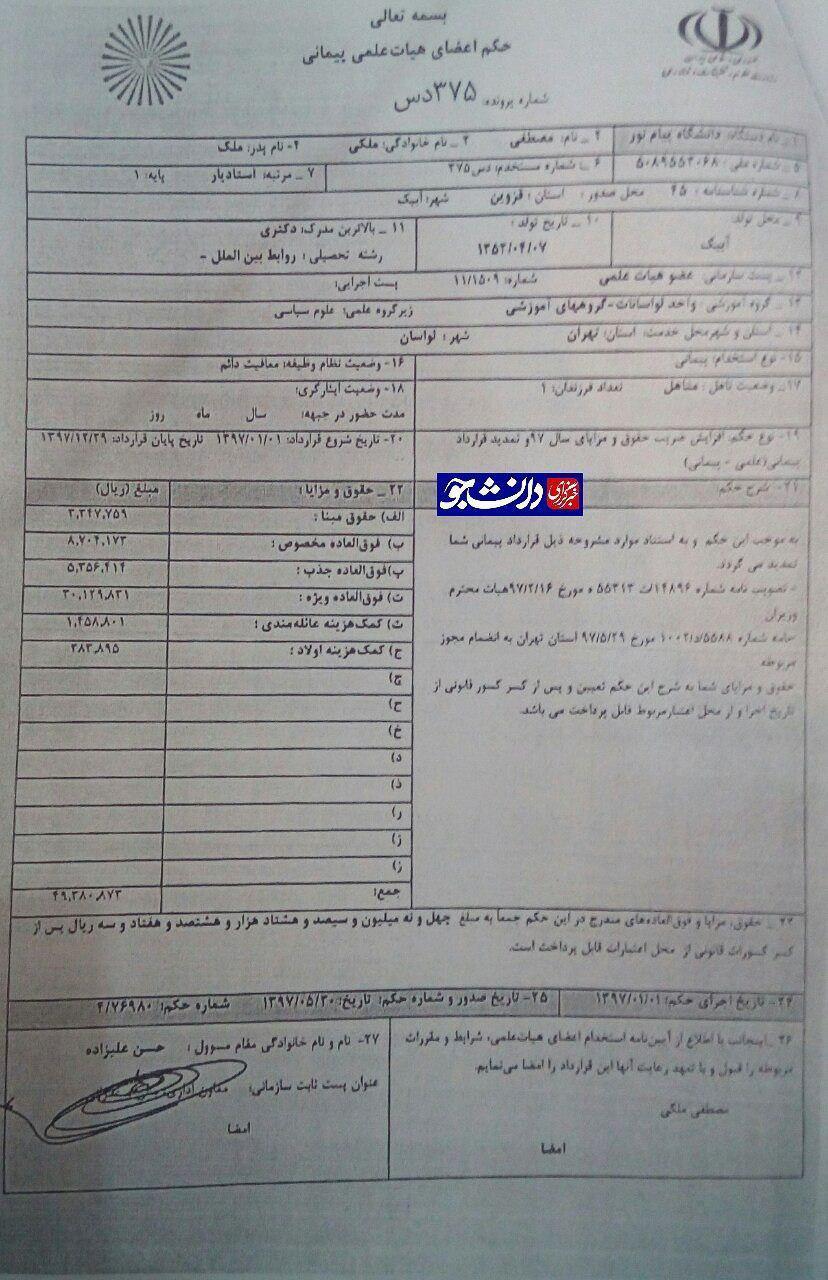 بسمه تعالی
حکم اعضای هیات‌علمی پیمانی
شماره پرونده: ۳۷۵دس
۱_ نام دستگاه: دانشگاه پیام نور ۲_ نام: مصطفی ۳_ نام خانوادگی: ملکی ۴- نام پدر: ملک
۵_ شماره ملی: ۵۰۸۹۵۵۲۰۶۸ ۶_ شماره مستخدم: دس۳۷۵ ۷_ مرتبه: استادیار پایه: ۱
۸_ شماره شناسنامه: ۴۵ محل صدور: استان: قزوین شهر: آبیک
۹_ محل تولد: آبیک
۱۰_ تاریخ تولد: ۱۳۵۲/۰۴/۰۷
۱۱_ بالاترین مدرک: دکتری
رشته تحصیلی: روابط بین الملل -
۱۲_ پست سازمانی: عضو هیات علمی شماره: ۱۱/۱۵۰۹ پست اجرایی:
۱۳_ گروه آموزشی: واحد لواسانات-گروههای آموزشی زیرگروه علمی: علوم سیاسی
۱۴_ استان و شهرمحل خدمت: استان: تهران شهر: لواسان
۱۵- نوع استخدام: پیمانی ۱۶- وضعیت نظام وظیفه: معافیت دائم
۱۷_ وضعیت تاهل: متاهل تعداد فرزندان: ۱
۱۸- وضعیت ایثارگری:
مدت حضور در جبهه: سال ماه روز
۱۹- نوع حکم: افزایش ضریب حقوق و مزایای سال ۹۷و تمدید قرارداد
پیمانی(علمی - پیمانی)
۲۰- تاریخ شروع قرارداد: ۱۳۹۷/۰۱/۰۱ تاریخ پایان قرارداد: ۱۳۹۷/۱۲/۲۹
۲۱- شرح حکم:
خبرگزاری دانشجو
به موجب این حکم و به استناد موارد مشروحه ذیل قرارداد پیمانی شما
تمدید می گردد.
- تصویب نامه شماره ۱۴۸۹۶/ت ۵۵۳۱۳ ه مورخ ۹۷/۲/۱۶هیات محترم
وزیران
-نامه شماره ۵۵۸۸/د/۱۰۰۲ مورخ ۹۷/۵/۲۹ استان تهران به انضمام مجوز
مربوطه
حقوق و مزایای شما به شرح این حکم تعیین و پس از کسر کسور قانونی از
تاریخ اجرا و از محل اعتبارمربوط قابل پرداخت می باشد.
۲۲_ حقوق و مزایا: مبلغ (ریال)
الف) حقوق مبنا: ۳,۳۴۷,۷۵۹
ب) فوق‌العاده مخصوص: ۸,۷۰۴,۱۷۳
پ)فوق‌العاده جذب: ۵,۳۵۶,۴۱۴
ت) فوق‌العاده ویژه: ۳۰,۱۲۹,۸۳۱
ث) کمک‌هزینه عائله‌مندی: ۱,۴۵۸,۸۰۱
ج) کمک‌هزینه اولاد: ۳۸۳,۸۹۵
چ)
ح)
خ)
د)
ذ)
ر)
ز)
ژ)
جمع: ۴۹,۳۸۰,۸۷۳
۲۳_ حقوق، مزایا و فوق‌العاده‌های مندرج در این حکم جمعاً به مبلغ چهل و نه میلیون و سیصد و هشتاد هزار و هشتصد و هفتاد و سه ریال پس از
کسر کسورات قانونی از محل اعتبارات قابل پرداخت است.
۲۴- تاریخ اجرای حکم: ۱۳۹۷/۰۱/۰۱ ۲۵- تاریخ صدور و شماره حکم: تاریخ: ۱۳۹۷/۰۵/۳۰ شماره حکم: ۴/۷۶۹۸۰
۲۶_ اینجانب با اطلاع از آیین‌نامه استخدام اعضای هیات‌علمی، شرایط و مقررات
مربوطه را قبول و با تعهد رعایت آنها این قرارداد را امضا می‌نمایم.
مصطفی ملکی
امضا
۲۷- نام و نام خانوادگی مقام مسوول: حسن علیزاده
عنوان پست ثابت سازمانی: معاون اداری،
امضا